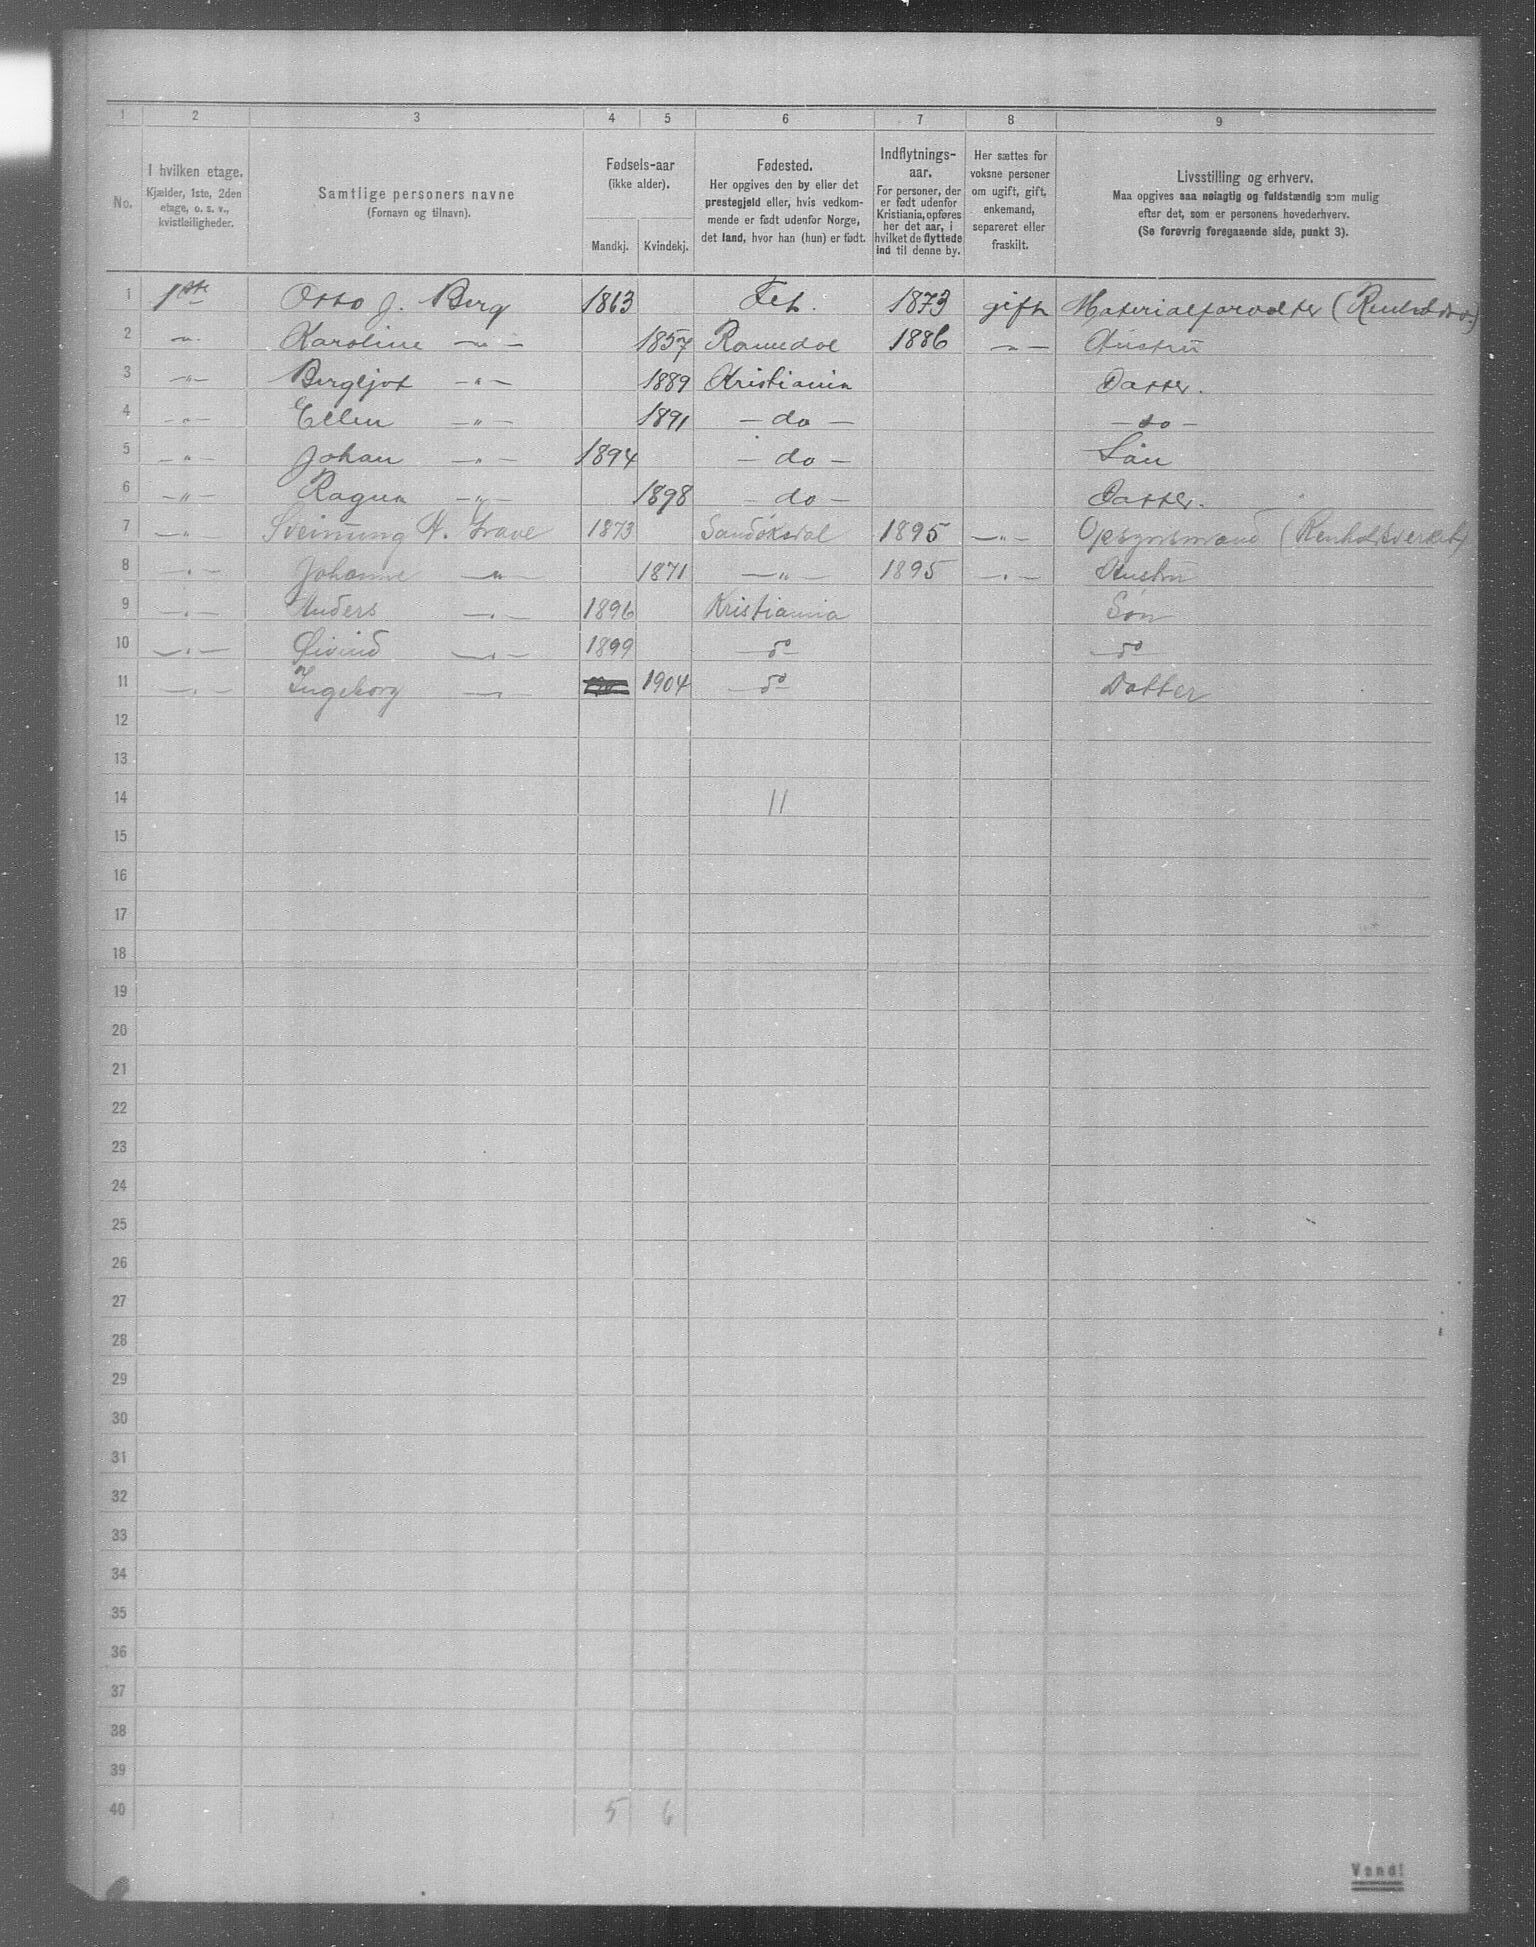 1 2 3 4 5 6 7 8 9
No.
I hvilken etage.
Kjælder, 1ste, 2den
etage, o. s. v.,
kvistleiligheder.
Samtlige personers navne
(Fornavn og tilnavn).
Fødsels-aar
(ikke alder).
Mandkj. Kvindekj.
Fødested.
Her opgives den by eller det
prestegjeld eller, hvis vedkom-
mende er født udenfor Norge,
det land, hvor han (hun) er født.
Indflytnings-
aar.
For personer, der
er født udenfor
Kristiania, opføres
her det aar, i
hvilket de flyttede
ind til denne by.
Her sættes for
voksne personer
om ugift, gift,
enkemand,
separeret eller
fraskilt.
Livsstilling og erhverv.
Maa opgives saa nøiagtig og fuldstændig som mulig
efter det, som er personens hovederhverv.
(Se forøvrig foregaaende side, punkt 3).
1 1ste Otto J. Berg 1863 Fet. 1873 gift Materialforvalter
2 -"- Karoline -"- 1857 Romedal 1886 -"- Hustru
3 -"- Bergljot -"- 1889 Kristiania Datter.
4 -"- Ellen -"- 1891 - do - - do -
5 -"- Johan -"- 1894 - do - Søn
6 -"- Ragna -"- 1898 - do - Datter.
7 -"- Sveinung H. Grave 1873 Sandøkedal 1895 -"- Opsynsmand (Renholdsverket)
8 -"- Johanne -"- 1871 -"- 1895 -"- Hustru
9 -"- Anders -"- 1896 Kristiania Søn
10 -"- Øivind -"- 1899 do do
11 -"- Ingeborg -"- 1904 do Datter
12
13
14 11
15
16
17
18
19
20
21
22
23
24
25
26
27
28
29
30
31
32
33
34
35
36
37
38
39
40 5 6
Vend!